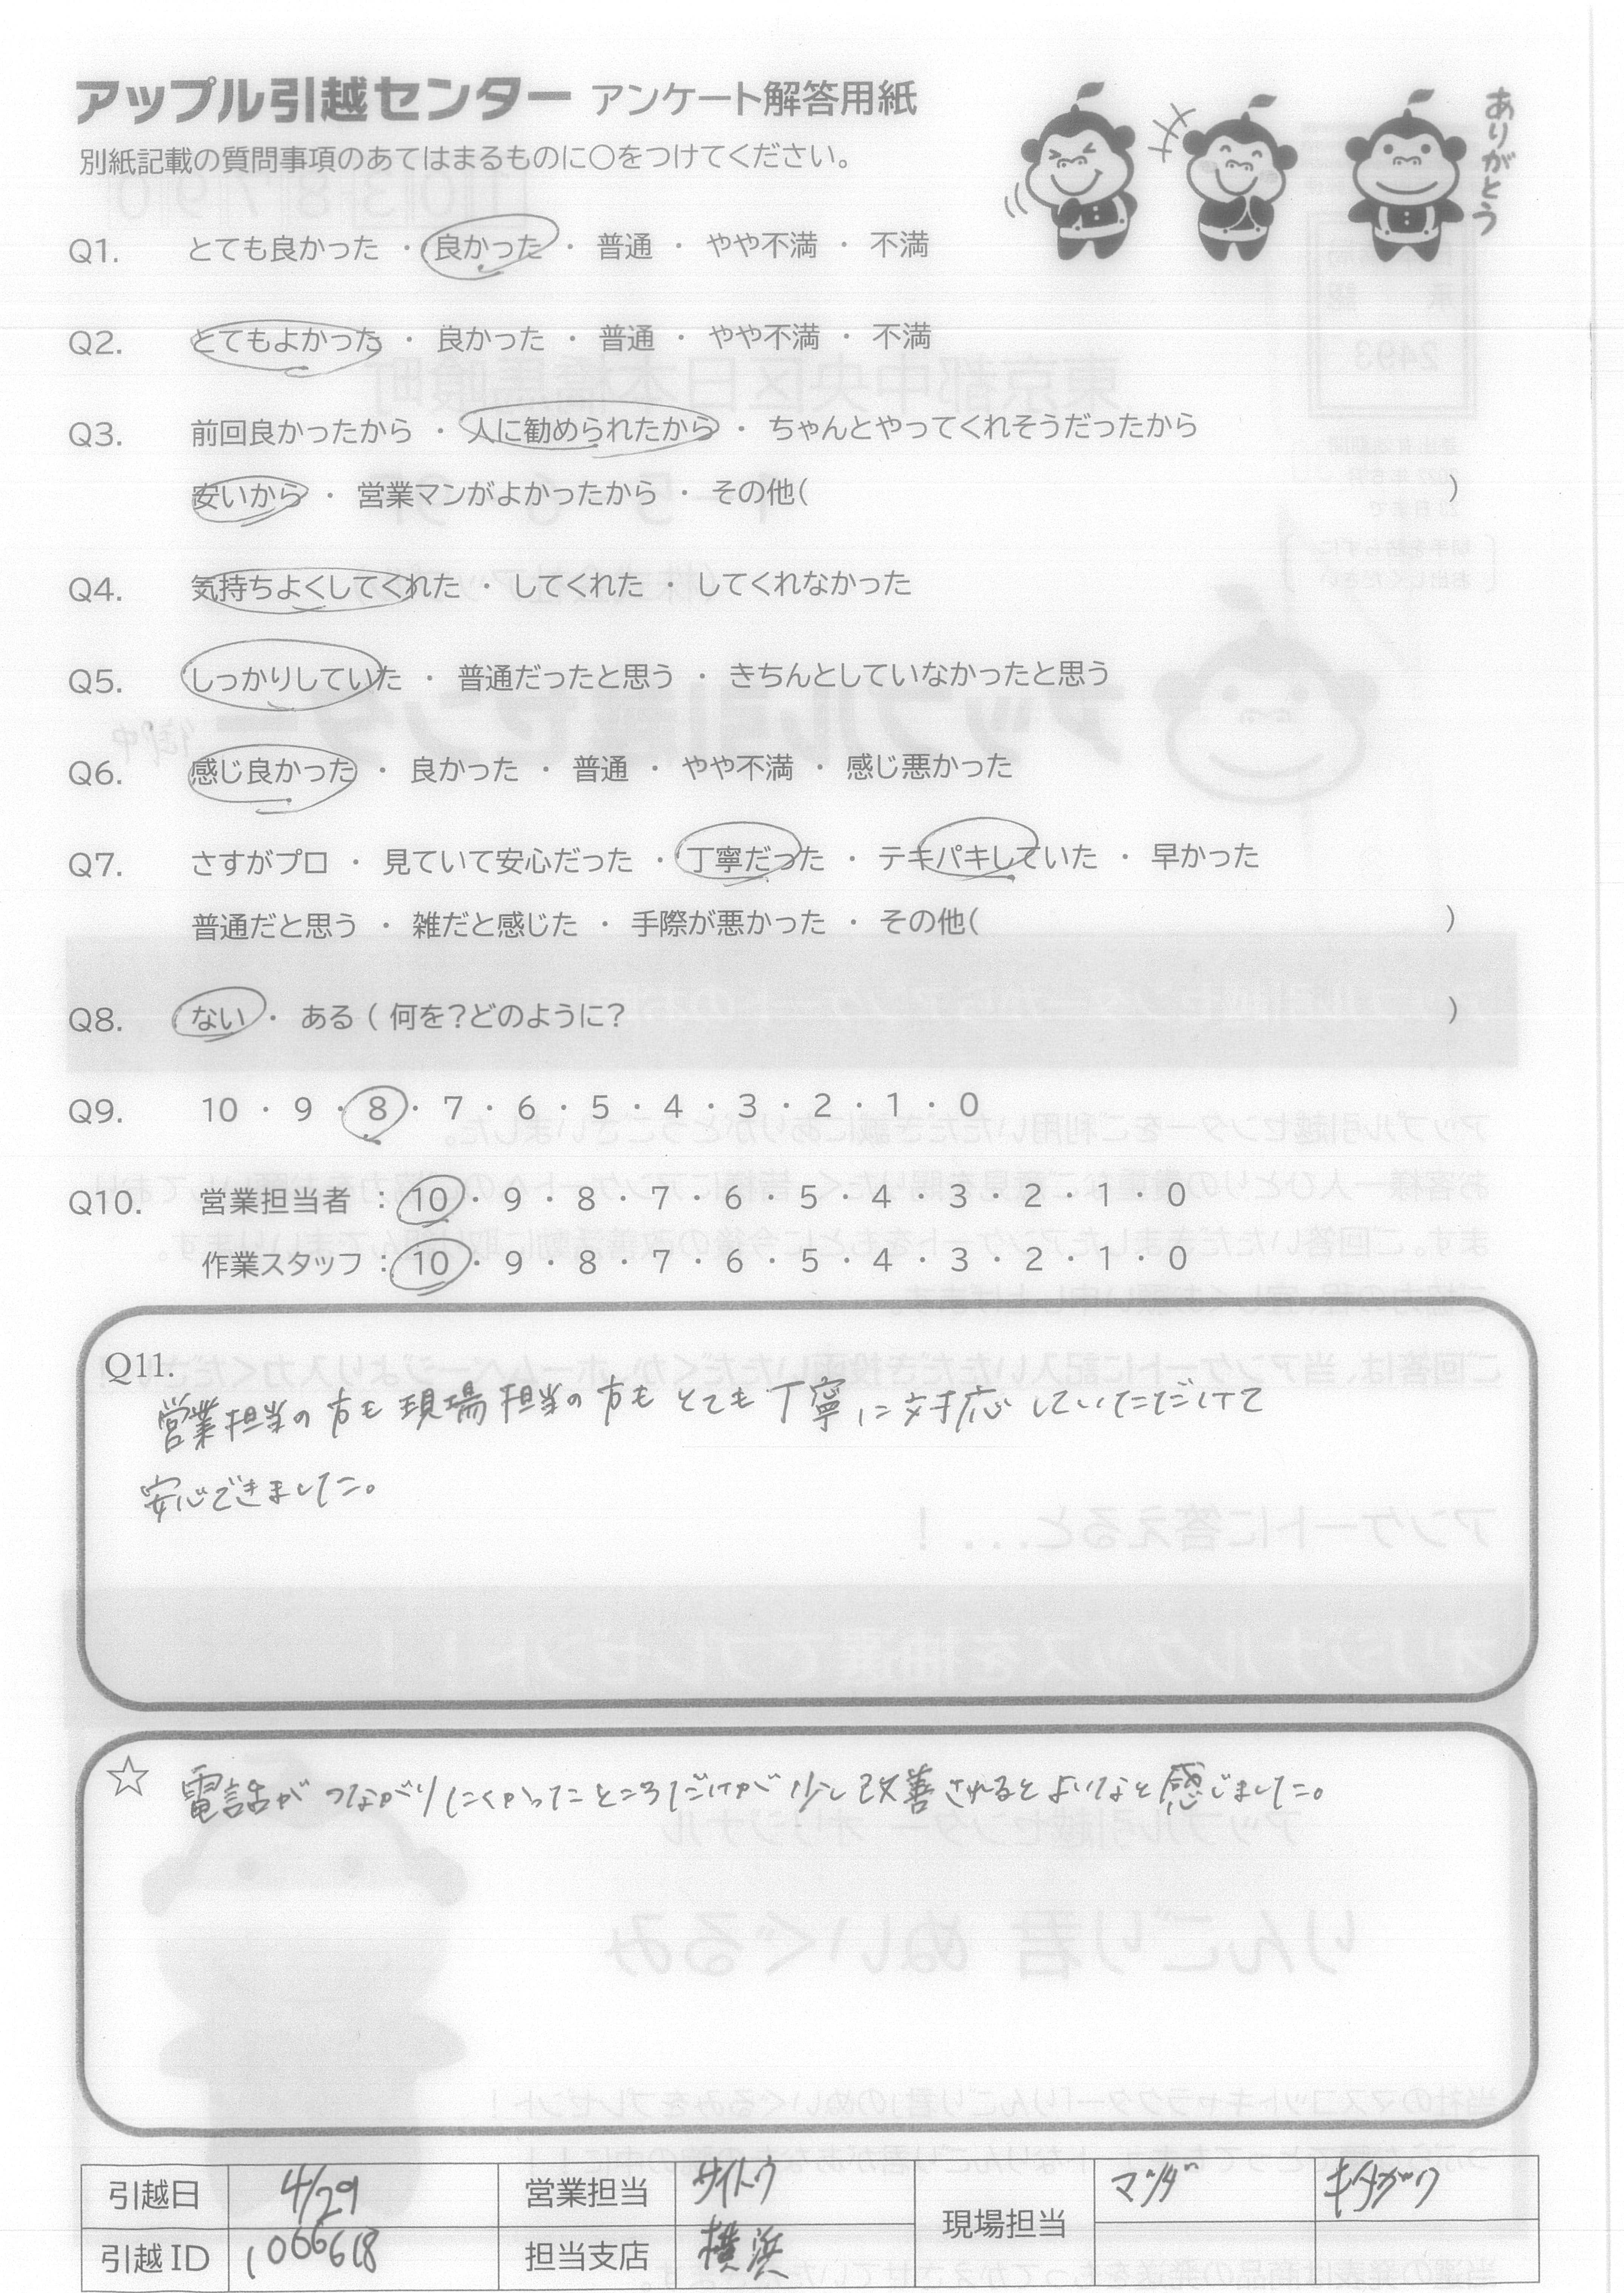 アップル引越センター アンケート解答用紙
ありがとう
別紙記載の質問事項のあてはまるものに○をつけてください。
Q1. とても良かった ・ 良かった ・ 普通 ・ やや不満 ・ 不満
Q2. とてもよかった ・ 良かった ・ 普通 ・ やや不満 ・ 不満
Q3. 前回良かったから ・ 人に勧められたから ・ ちゃんとやってくれそうだったから
安いから ・ 営業マンがよかったから ・ その他( )
Q4. 気持ちよくしてくれた ・ してくれた ・ してくれなかった
Q5. しっかりしていた ・ 普通だったと思う ・ きちんとしていなかったと思う
Q6. 感じ良かった ・ 良かった ・ 普通 ・ やや不満 ・ 感じ悪かった
Q7. さすがプロ ・ 見ていて安心だった ・ 丁寧だった ・ テキパキしていた ・ 早かった
普通だと思う ・ 雑だと感じた ・ 手際が悪かった ・ その他( )
Q8. ない ・ ある ( 何を?どのように? )
Q9. 10 ・ 9 ・ 8 ・ 7 ・ 6 ・ 5 ・ 4 ・ 3 ・ 2 ・ 1 ・ 0
Q10. 営業担当者 : 10 ・ 9 ・ 8 ・ 7 ・ 6 ・ 5 ・ 4 ・ 3 ・ 2 ・ 1 ・ 0
作業スタッフ : 10 ・ 9 ・ 8 ・ 7 ・ 6 ・ 5 ・ 4 ・ 3 ・ 2 ・ 1 ・ 0
Q11.
営業担当の方も現場担当の方もとても丁寧に対応していただけて
安心できました。
☆ 電話がつながりにくかったところだけが少し改善されるとよいなと感じました。
引越日 4/29 営業担当 サイトウ 現場担当 マツダ キタガワ
引越ID 1066618 担当支店 横浜